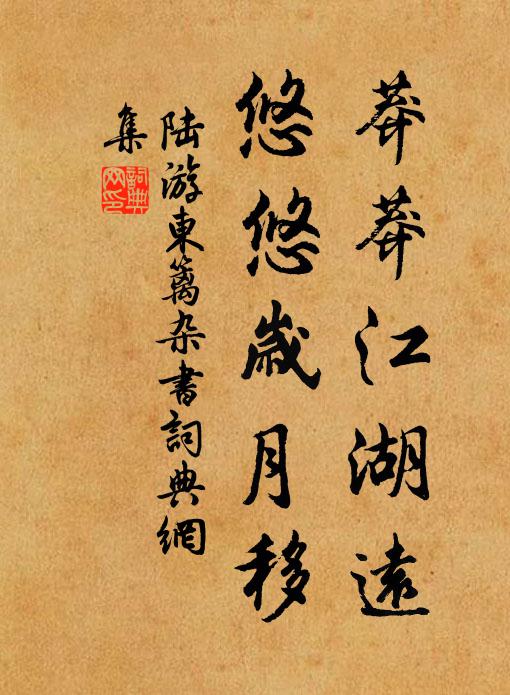 莽莽江湖遠
悠悠歲月移
陆游東籬杂書詞典網
集
詞典網印